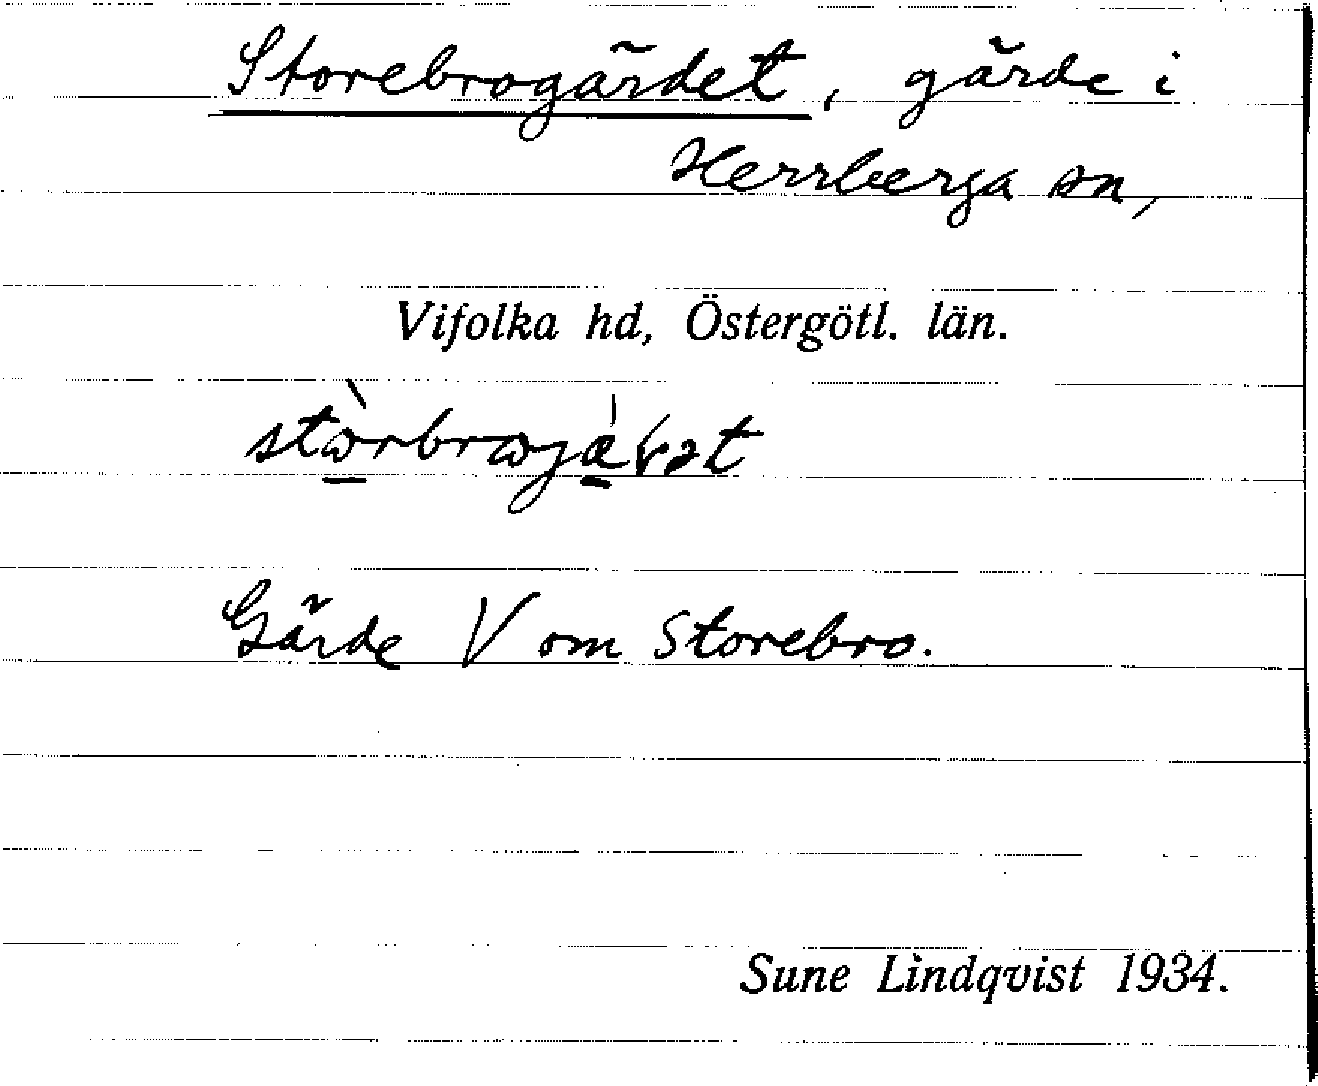 Storebrogärdet, gärde i
Herrberga sn,
Vifolka hd, Östergötl. län.
Gärde V om Storebro.
Sune Lindqvist 1934.